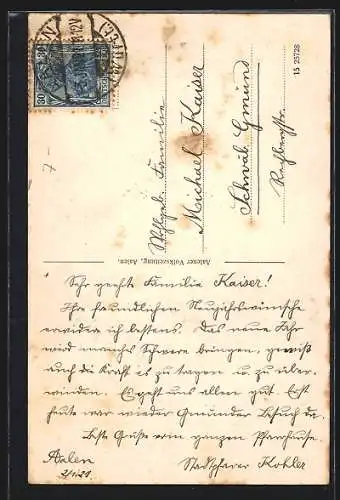 15 25728
Wohlgeb. Familie
Michael Kaiser
Schwäb. Gmünd
Rechbergstr.
Aalener Volkszeitung, Aalen.
Sehr geehrte Familie Kaiser!
Ihre freundlichen Neujahrswünsche
erwidere ich bestens. Das neue Jahr
wird manches Schwere bringen, gewiß
auch die Kraft es zu tragen u. zu über-
winden. Es geht uns allen gut. Erst
heute war wieder Gmünder Besuch da.
Beste Grüße vom ganzen Pfarrhause.
Aalen
Stadtpfarrer Kohler